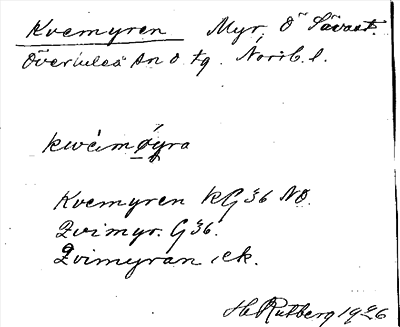 Kvemyren Myr, Ö Sävast.
Överluleå sn o tg. Norrb. l.
kwèimǿyra
Kvemyren KG 36 NO.
Qvimyr. G 36.
Qvimyran, ek.
H Rutberg 1926